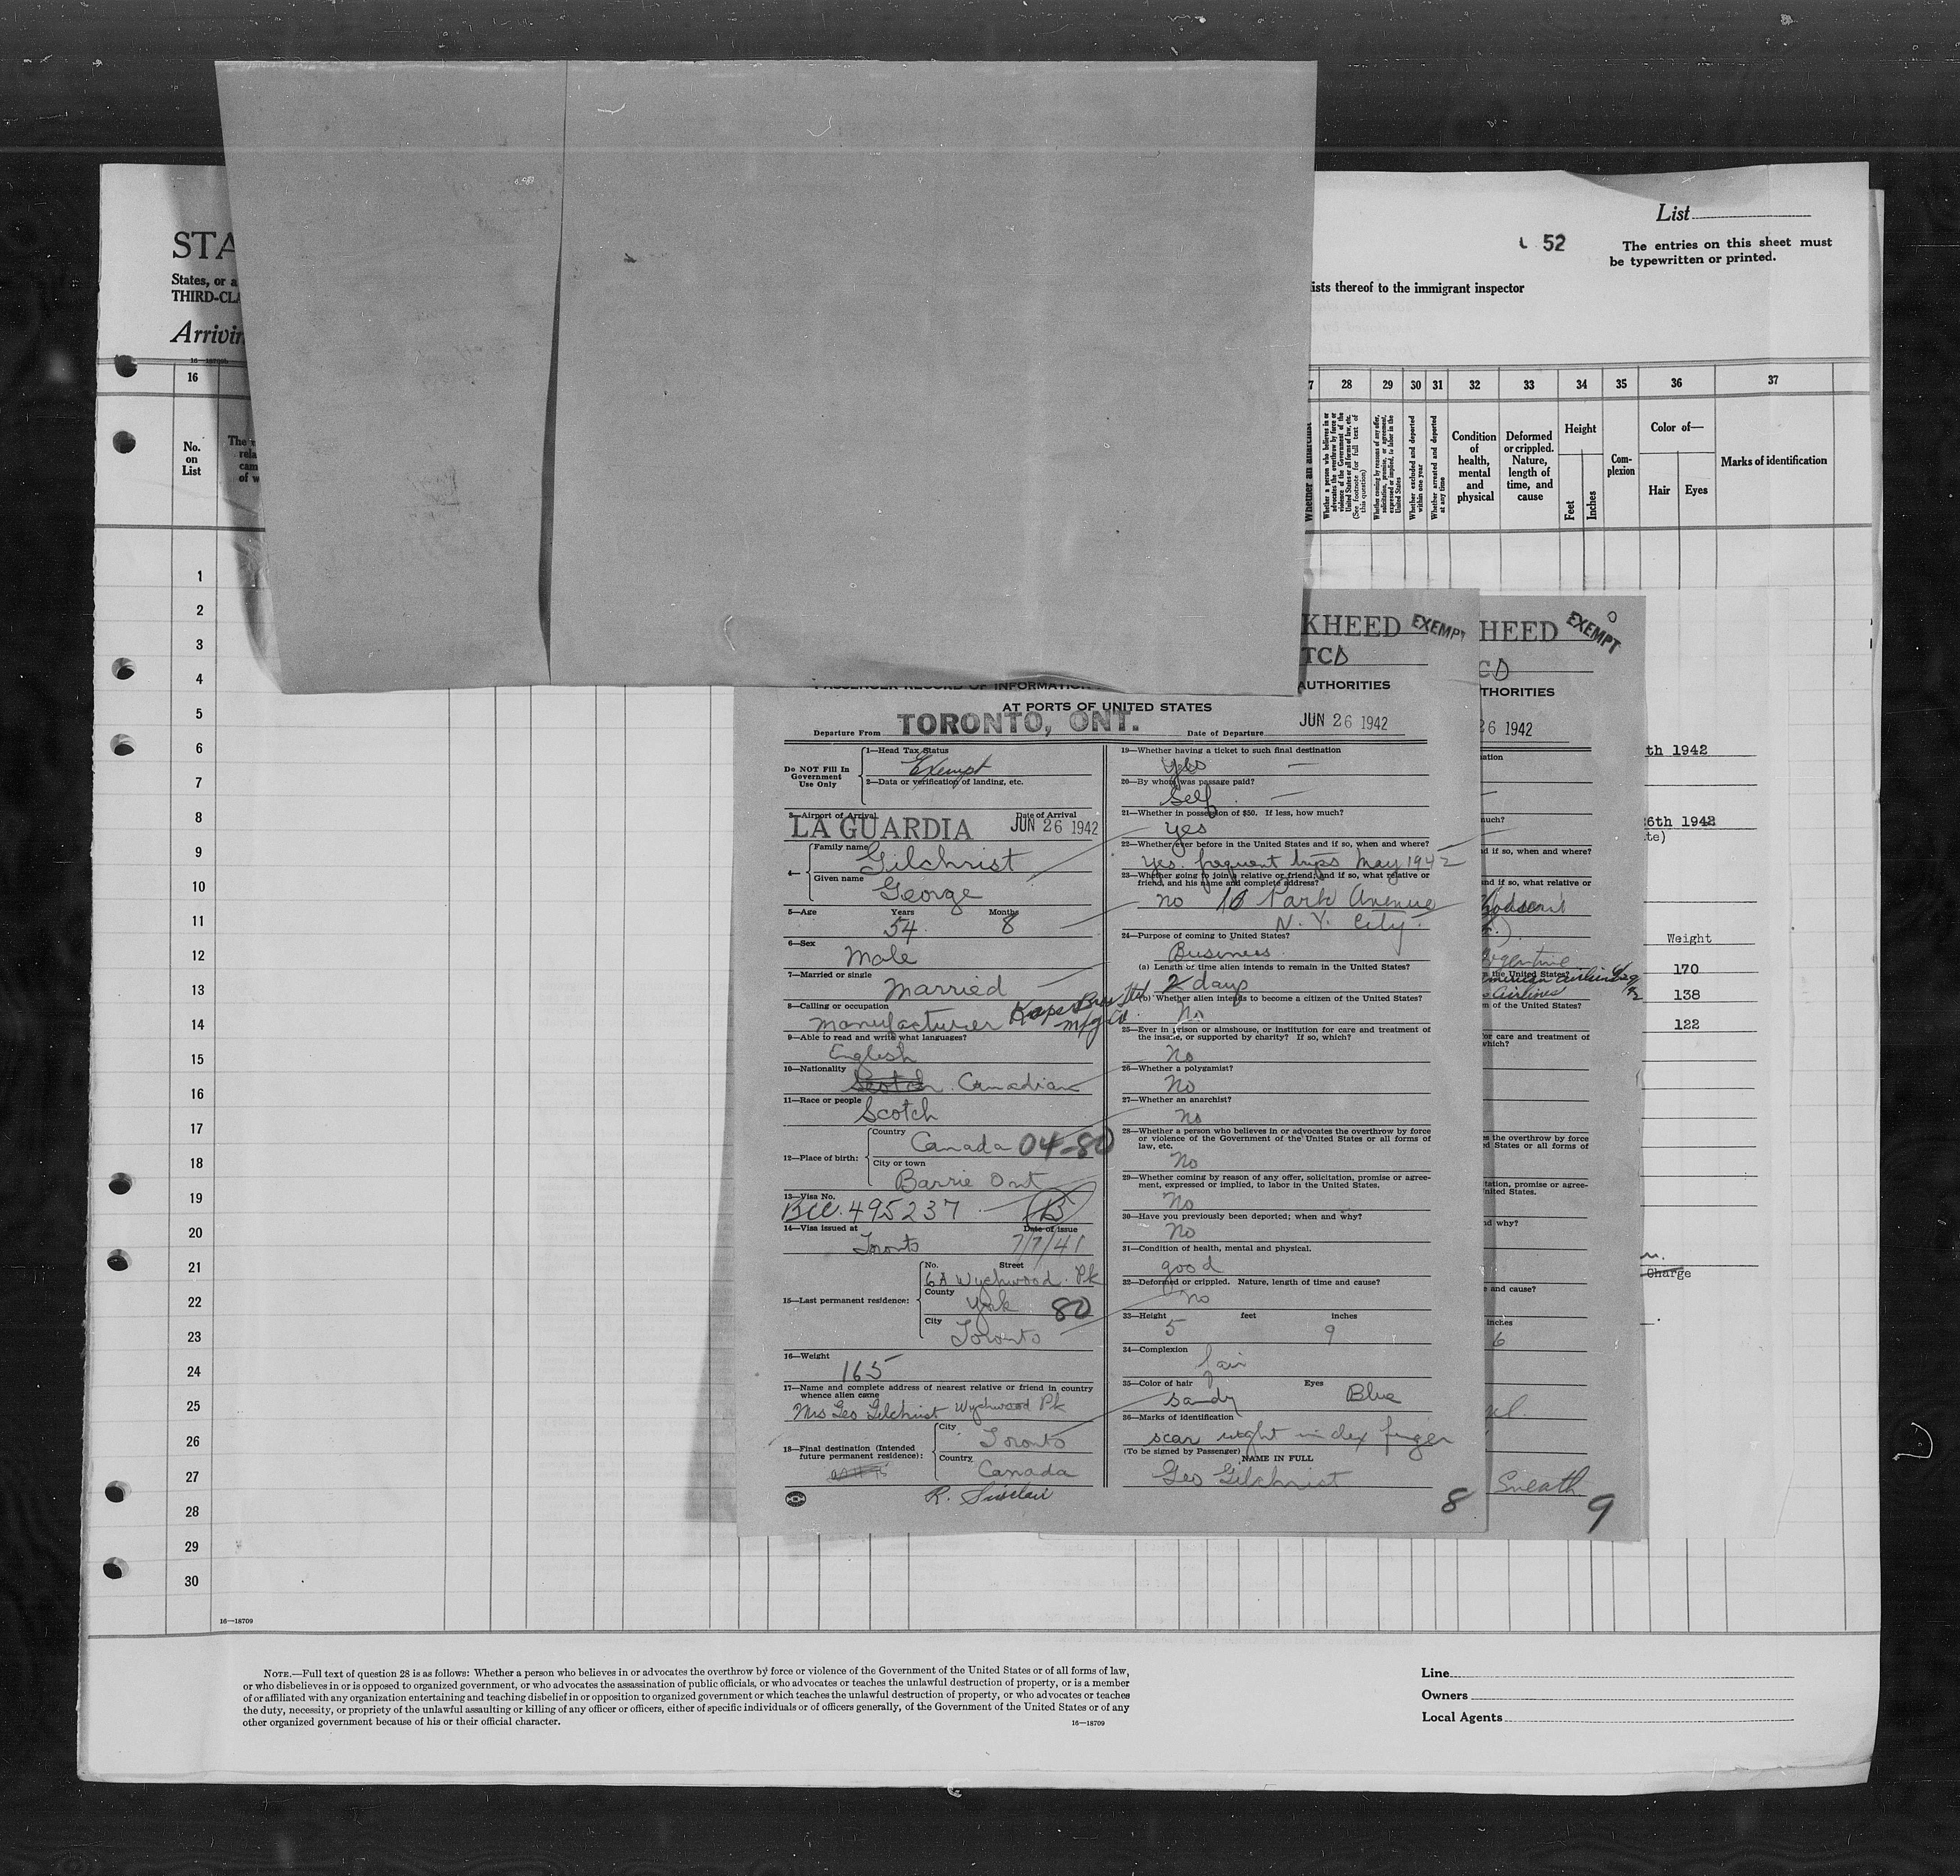 STA
States, or a
THIRD-CLA
Arrivin
List
52
The entries on this sheet must
be typewritten or printed.
ists thereof to the immigrant inspector
16 28 29 30 31 32 33 34 35 36 37
No.
on
List
Whether an anarchist
Whether a person who believes in or
advocates the overthrow by force or
violence of the Government of the
United States or all forms of law, etc.
(See footnote for full text of
this question)
Whether coming by reasons of any offer,
solicitation, promise, or agreement,
expressed or implied, to labor in the
United States
Whether excluded and deported
within one year
Whether arrested and deported
at any time
Condition
of
health,
mental
and
physical
Deformed
or crippled.
Nature,
length of
time, and
cause
Height
Feet
Inches
Com-
plexion
Color of—
Hair
Eyes
Marks of identification
1
2
3
4
5
6
7
8
9
10
11
12
13
14
15
16
17
18
19
20
21
22
23
24
25
26
27
28
29
30
16—18709
KHEED EXEMPT
TCD
PASSENGER RECORD OF INFORMATION AUTHORITIES
AT PORTS OF UNITED STATES
Departure From TORONTO, ONT. Date of Departure JUN 26 1942
Do NOT Fill In
Government
Use Only
1—Head Tax Status
Exempt
2—Data or verification of landing, etc.
3—Airport of Arrival Date of Arrival
LA GUARDIA JUN 26 1942
4—
Family name Gilchrist
Given name George
5—Age Years Months
54 8
6—Sex
Male
7—Married or single
Married
8—Calling or occupation
Manufacturer
Mfg Co.
9—Able to read and write what languages?
English
10—Nationality
Scotch. Canadian
11—Race or people
Scotch
12—Place of birth:
Country
Canada 04-80
City or town
Barrie Ont
13—Visa No.
BCC. 495237 B
14—Visa issued at Date of issue
Toronto 7/7/41
15—Last permanent residence:
No. Street
6A Wychwood Pk
County
York 80
City
Toronto
16—Weight
165
17—Name and complete address of nearest relative or friend in country
whence alien came
Mrs Geo Gilchrist Wychwood Pk
18—Final destination (Intended
future permanent residence):
City
Toronto
Country
Canada
R. Sinclair
19—Whether having a ticket to such final destination
Yes —
20—By whom was passage paid?
Self —
21—Whether in possession of $50. If less, how much?
yes
22—Whether ever before in the United States and if so, when and where?
Yes. frequent trips May 1942
23—Whether going to join a relative or friend; and if so, what relative or
friend, and his name and complete address?
no 10 Park Avenue
N. Y. City.
24—Purpose of coming to United States?
Business
(a) Length of time alien intends to remain in the United States?
2 days
(b) Whether alien intends to become a citizen of the United States?
No
25—Ever in prison or almshouse, or institution for care and treatment of
the insane, or supported by charity? If so, which?
No
26—Whether a polygamist?
No
27—Whether an anarchist?
No
28—Whether a person who believes in or advocates the overthrow by force
or violence of the Government of the United States or all forms of
law, etc.
No
29—Whether coming by reason of any offer, solicitation, promise or agree-
ment, expressed or implied, to labor in the United States.
No
30—Have you previously been deported; when and why?
No
31—Condition of health, mental and physical.
good
32—Deformed or crippled. Nature, length of time and cause?
no
33—Height feet inches
5 9
34—Complexion
fair
35—Color of hair Eyes
Sandy Blue
36—Marks of identification
scar right index finger
(To be signed by Passenger)
NAME IN FULL
Geo Gilchrist
8
HEED EXEMPT
CD
THORITIES
26 1942
ation
uch?
d if so, when and where?
and if so, what relative or
the United States?
American Airlines
Airlines
n of the United States?
or care and treatment of
which?
s the overthrow by force
d States or all forms of
tation, promise or agree-
nited States.
nd why?
e and cause?
inches
6
Sneath
9
th 1942
6th 1942
te)
Weight
170
138
122
Charge
NOTE.—Full text of question 28 is as follows: Whether a person who believes in or advocates the overthrow by force or violence of the Government of the United States or of all forms of law,
or who disbelieves in or is opposed to organized government, or who advocates the assassination of public officials, or who advocates or teaches the unlawful destruction of property, or is a member
of or affiliated with any organization entertaining and teaching disbelief in or opposition to organized government or which teaches the unlawful destruction of property, or who advocates or teaches
the duty, necessity, or propriety of the unlawful assaulting or killing of any officer or officers, either of specific individuals or of officers generally, of the Government of the United States or of any
other organized government because of his or their official character.
16—18709
Line
Owners
Local Agents